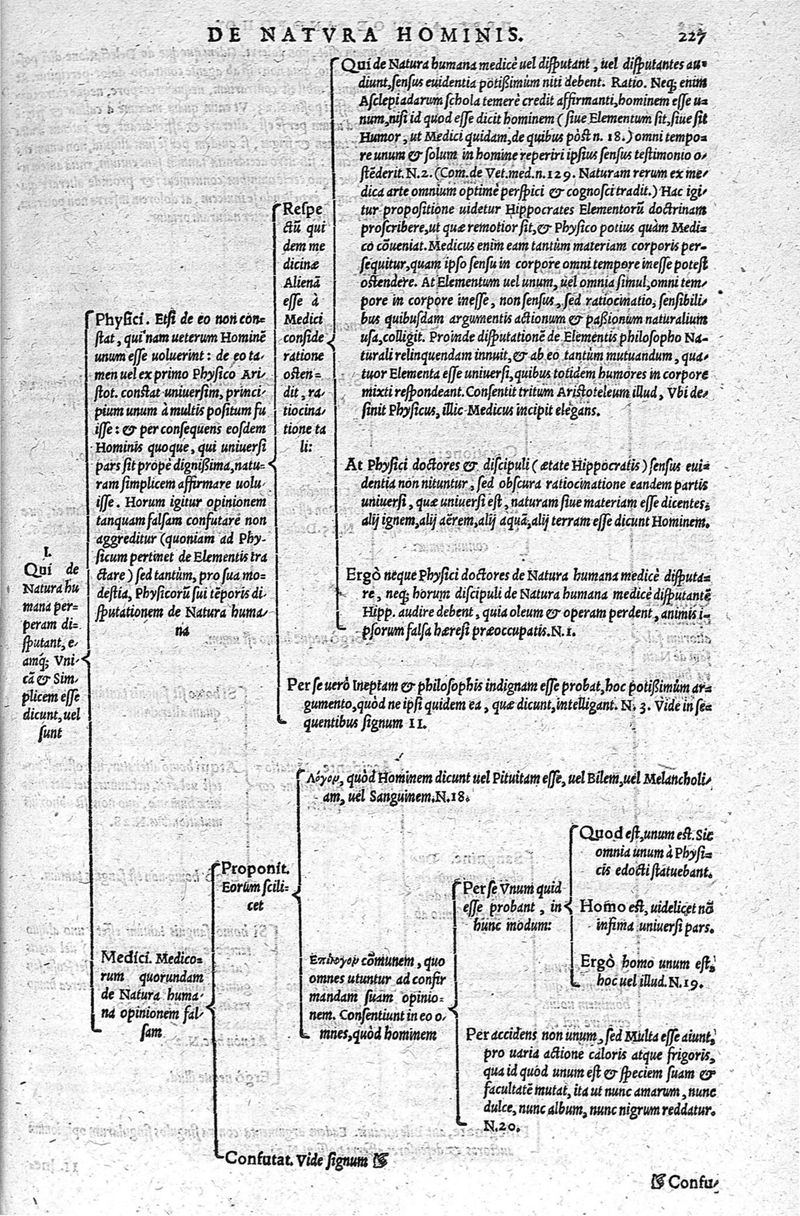 DE NATVRA HOMINIS. 227
I.
Qui de
Natura hu
mana per-
peram di-
sputant, e-
amq́; Vni-
cā & Sim-
plicem esse
dicunt, uel
sunt
Physici. Etsi de eo non con-
stat, qui'nam ueterum Hominē
unum esse uoluerint: de eo ta-
men uel ex primo Physico Ari-
stot. constat uniuersim, princi-
pium unum à multis positum fu
isse: & per consequens eosdem
Hominis quoque, qui uniuersi
pars sit propè dignißima, natu-
ram simplicem affirmare uolu-
isse. Horum igitur opinionem
tanquam falsam confutare non
aggreditur (quoniam ad Phy-
sicum pertinet de Elementis tra
ctare) sed tantùm, pro sua mo-
destia, Physicorū sui tēporis di-
sputationem de Natura huma-
na
Respe
ctū qui
dem me
dicinæ
Alienā
esse à
Medici
conside
ratione
osten-
dit, ra-
tiocina-
tione ta
li:
Qui de Natura humana medicè uel disputant, uel disputantes au-
diunt, sensus euidentia potißimùm niti debent. Ratio. Neq; enim
Asclepiadarum schola temerè credit affirmanti, hominem esse u-
num, nisi id quod esse dicit hominem (siue Elementum sit, siue sit
Humor, ut Medici quidam, de quibus pòst n. 18.) omni tempo-
re unum & solum in homine reperiri ipsius sensus testimonio o-
stēderit. N.2. (Com. de Vet. med. n. 129. Naturam rerum ex me-
dica arte omnium optimè perspici & cognosci tradit.) Hac igi-
tur propositione uidetur Hippocrates Elementorū doctrinam
proscribere, ut quæ remotior sit, & Physico potius quàm Medi-
co cōueniat. Medicus enim eam tantùm materiam corporis per-
sequitur, quam ipso sensu in corpore omni tempore inesse potest
ostendere. At Elementum uel unum, uel omnia simul, omni tem-
pore in corpore inesse, non sensus, sed ratiocinatio, sensibili-
bus quibusdam argumentis actionum & paßionum naturalium
usa, colligit. Proinde disputationē de Elementis philosopho Na-
turali relinquendam innuit, & ab eo tantùm mutuandum, qua-
tuor Elementa esse uniuersi, quibus totidem humores in corpore
mixti respondeant. Consentit tritum Aristoteleum illud, Vbi de-
sinit Physicus, illic Medicus incipit elegans.
At Physici doctores & discipuli (ætate Hippocratis) sensus eui-
dentia non nituntur, sed obscura ratiocinatione eandem partis
uniuersi, quæ uniuersi est, naturam siue materiam esse dicentes:
alij ignem, alij aërem, alij aquā, alij terram esse dicunt Hominem.
Ergò neque Physici doctores de Natura humana medicè disputa-
re, neq; horum discipuli de Natura humana medicè disputantē
Hipp. audire debent, quia oleum & operam perdent, animis i-
psorum falsa hæresi præoccupatis. N.1.
Per se uerò Ineptam & philosophis indignam esse probat, hoc potißimùm ar-
gumento, quòd ne ipsi quidem ea, quæ dicunt, intelligant. N. 3. Vide in se-
quentibus signum II.
Medici. Medico-
rum quorundam
de Natura huma-
na opinionem fal-
sam
Proponit.
Eorum scili-
cet
Λόγον, quòd Hominem dicunt uel Pituitam esse, uel Bilem, uel Melancholi-
am, uel Sanguinem. N.18.
Ἐπίλογον cōmunem, quo
omnes utuntur ad confir
mandam suam opinio-
nem. Consentiunt in eo o-
mnes, quòd hominem
Per se Vnum quid
esse probant, in
hunc modum:
Quod est, unum est. Sic
omnia unum à Physi-
cis edocti statuebant.
Homo est, uidelicet nō
infima uniuersi pars.
Ergò homo unum est,
hoc uel illud. N.19.
Per accidens non unum, sed Multa esse aiunt,
pro uaria actione caloris atque frigoris,
qua id quòd unum est & speciem suam &
facultatē mutat, ita ut nunc amarum, nunc
dulce, nunc album, nunc nigrum reddatur.
N.20.
Confutat. Vide signum ☞
☞ Confu-